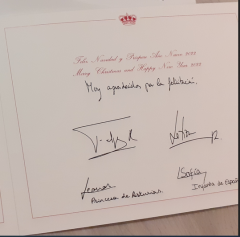 Feliz Navidad y Próspero Año Nuevo 2022
Merry Christmas and Happy New Year 2022
Muy agradecidos por la felicitación.
Felipe R
Letizia R
Leonor
Sofía
Princesa de Asturias
Infanta de España